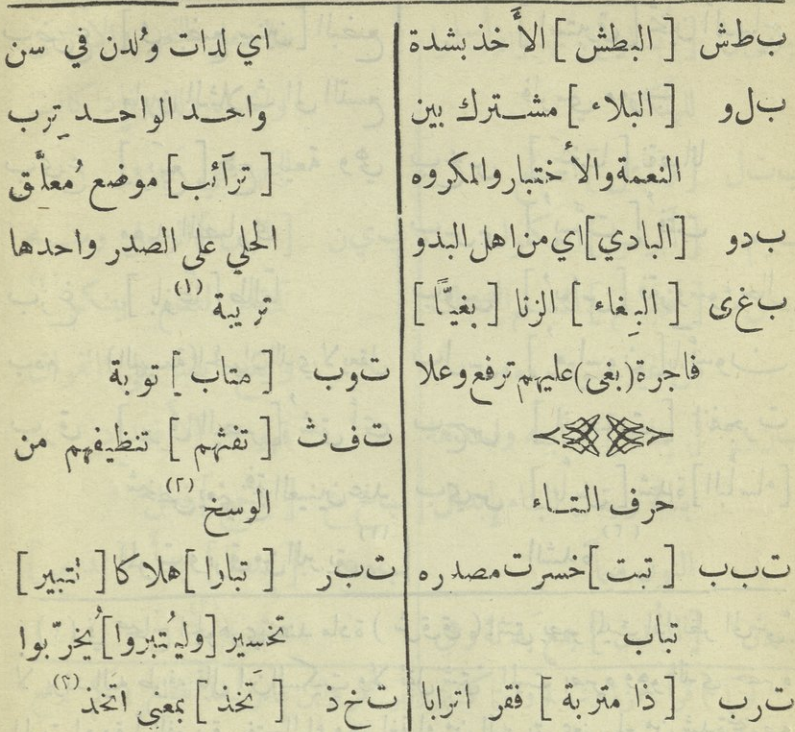 ب ط ش [ البطش ] الأخذ بشدة
ب ل و [ البلاء ] مشترك بين
النعمة والأختبار والمكروه
ب د و [البادي] اي من اهل البدو
ب غ ى [ البغاء ] الزنا [ بغيًّا ]
فاجرة (بغى) عليهم ترفع وعلا
حرف التاء
ت ب ب [ تبت ] خسرت مصدره
تباب
ت ر ب [ ذا متربة ] فقر اترابا
اي لدات وُلدن في سن
واحد الواحد تِرب
[ ترآئب] موضع مُعلَّق
الحلي على الصدر واحدها
تريبة (١)
ت و ب [ متاب ] توبة
ت ف ث [ تفثهم ] تنظيفهم من
الوسخ (٢)
ت ب ر [ تبارا ] هلاكا [ تتبير ]
تخسير [وليُتبروا] يُخرّبوا
ت خ ذ [ تَخذ ] بمعنى اتخذ (٣)